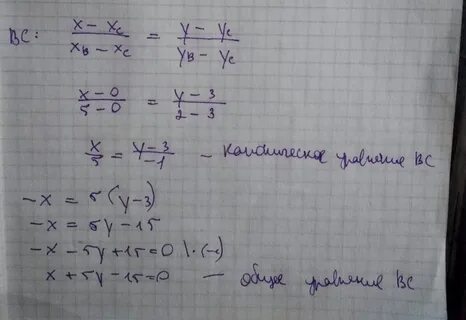 BC: (x - x_C)/(x_B - x_C) = (y - y_C)/(y_B - y_C)
(x - 0)/(5 - 0) = (y - 3)/(2 - 3)
x/5 = (y - 3)/(-1) — каноническое уравнение BC
-x = 5(y - 3)
-x = 5y - 15
-x - 5y + 15 = 0 |·(-1)
x + 5y - 15 = 0 — общее уравнение BC